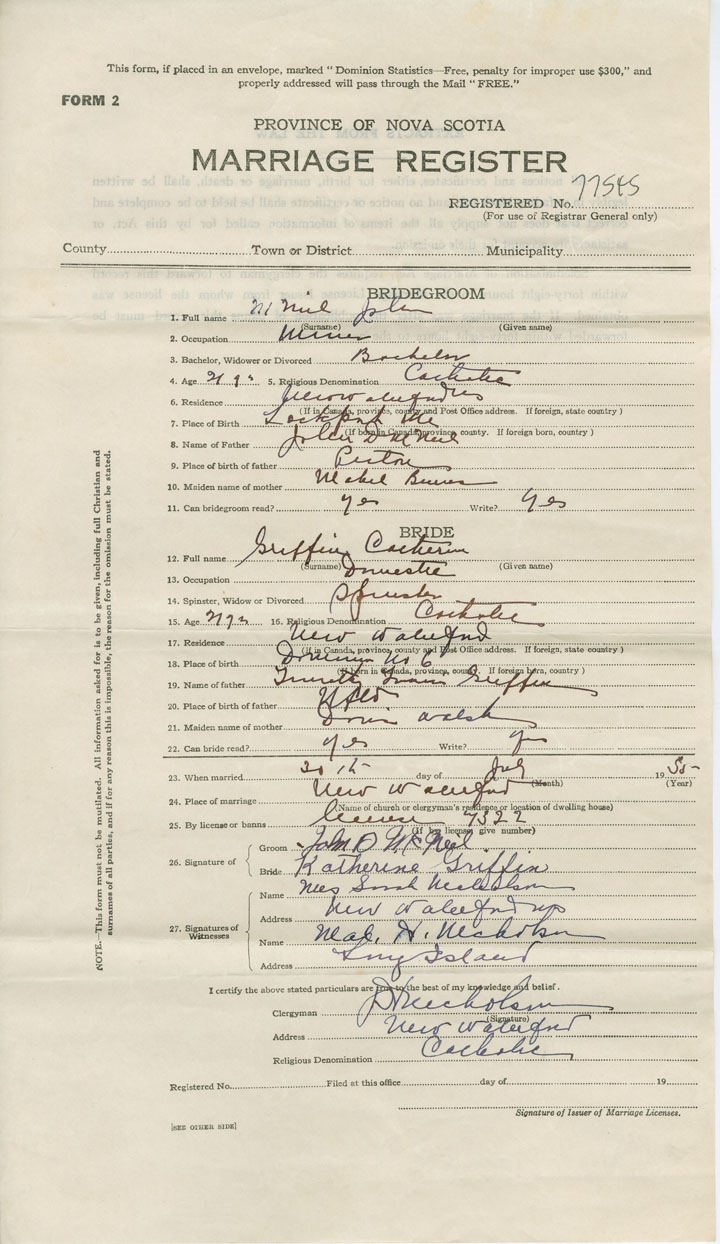 This form, if placed in an envelope, marked "Dominion Statistics—Free, penalty for improper use $300," and
properly addressed will pass through the Mail "FREE."
FORM 2
PROVINCE OF NOVA SCOTIA
MARRIAGE REGISTER
REGISTERED No. 77545
(For use of Registrar General only)
County Town or District Municipality
BRIDEGROOM
1. Full name McNeil John
(Surname) (Given name)
2. Occupation Miner
3. Bachelor, Widower or Divorced Bachelor
4. Age 21 yrs 5. Religious Denomination Catholic
6. Residence New Waterford NS
(If in Canada, province, county and Post Office address. If foreign, state country )
7. Place of Birth Lockport
(If born in Canada, province, county. If foreign born, country )
8. Name of Father John D McNeil
9. Place of birth of father Pictou
10. Maiden name of mother Mabel
11. Can bridegroom read? yes Write? Yes
BRIDE
12. Full name Griffin Catherin
(Surname) (Given name)
13. Occupation Domestic
14. Spinster, Widow or Divorced Spinster
15. Age 21 yrs 16. Religious Denomination Catholic
17. Residence New Waterford
(If in Canada, province, county and Post Office address. If foreign, state country )
18. Place of birth Dominion No 6
(If born in Canada, province, county. If foreign born, country )
19. Name of father Timothy Griffin
20. Place of birth of father Nfld
21. Maiden name of mother Walsh
22. Can bride read? yes Write? yes
23. When married 20th day of July 19
(Month) (Year)
24. Place of marriage New Waterford
(Name of church or clergyman's residence or location of dwelling house)
25. By license or banns license 7322
(If by license, give number)
26. Signature of
Groom John D McNeil
Bride Katherine Griffin
27. Signatures of Witnesses
Name Mrs Sarah Nicholson
Address New Waterford NS
Name Mal. H. Nicholson
Address Long Island
I certify the above stated particulars are true to the best of my knowledge and belief.
Clergyman Nicholson
(Signature)
Address New Waterford
Religious Denomination Catholic
Registered No. Filed at this office day of 19
Signature of Issuer of Marriage Licenses.
[SEE OTHER SIDE]
NOTE.—This form must not be mutilated. All information asked for is to be given, including full Christian and
surnames of all parties, and if for any reason this is impossible, the reason for the omission must be stated.